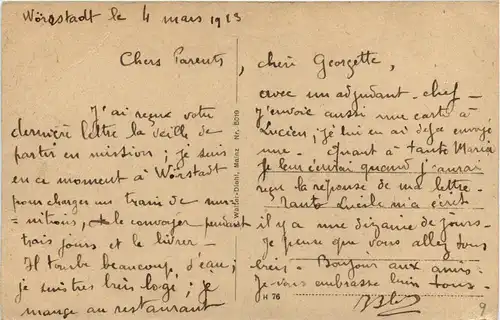 Wörstadt le 4 mars 1923
Chers Parents, chère Georgette,
J'ai reçu votre
dernière lettre la veille de
partir en mission ; je suis
en ce moment à Wörstadt
pour charger un train de mu-
=nitions, et le convoyer pendant
trois jours et le livrer -
Il tombe beaucoup d'eau ;
je suis très bien logé ; je
mange au restaurant
Walter Diehl, Mainz Nr. 8019
avec un adjudant-chef -
J'envoie aussi une carte à
Lucien ; je lui en ai déjà envoyé
une - Quant à tante Maria
je leur écrirai quand j'aurai
reçu la réponse de ma lettre -
Tante Lucile m'a écrit
il y a une dizaine de jours -
Je pense que vous allez tous
bien - Bonjour aux amis -
Je vous embrasse bien tous -
H 76
9